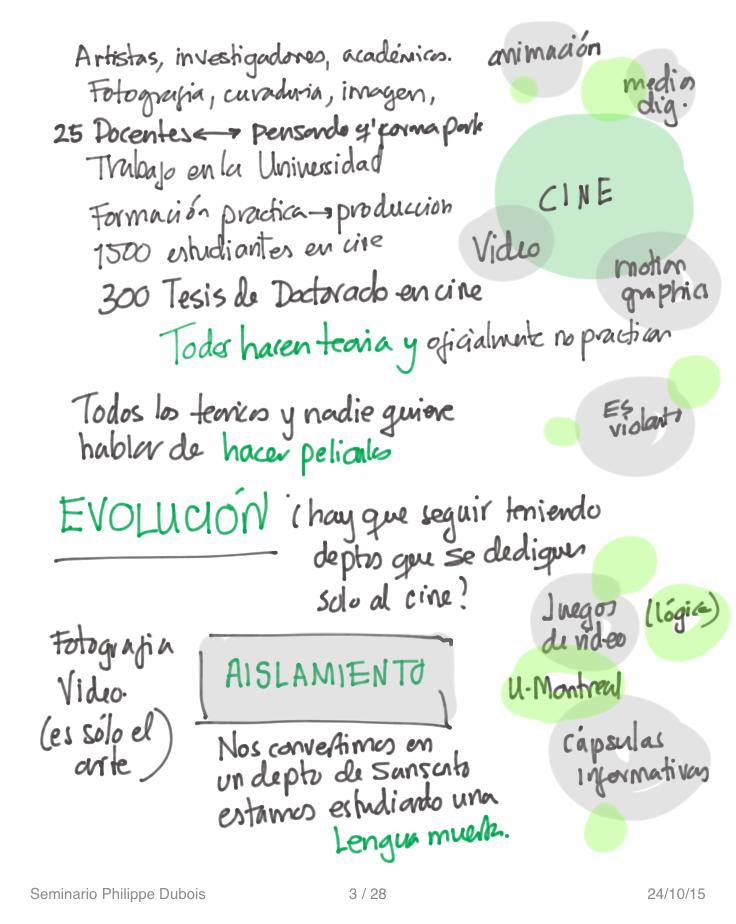 Artistas, investigadores, académicos.
Fotografia, curaduria, imagen,
25 Docentes ↔ pensando y forma part
Trabajo en la Universidad
Formación practica → produccion
1500 estudiantes en cine
300 Tesis de Doctorado en cine
Todos hacen teoria y oficialmente no practican
animación
medios
dig.
CINE
Video
motion
graphics
Todos los teoricos y nadie quiere
hablar de hacer peliculas
Es
violento
EVOLUCIÓN
¿hay que seguir teniendo
deptos que se dediquen
solo al cine?
Juegos
de video
(lógica)
U-Montreal
Cápsulas
informativas
Fotografia
Video.
(es sólo el
arte)
AISLAMIENTO
Nos convertimos en
un depto de Sanscrito
estamos estudiando una
Lengua muerta.
Seminario Philippe Dubois
3 / 28
24/10/15